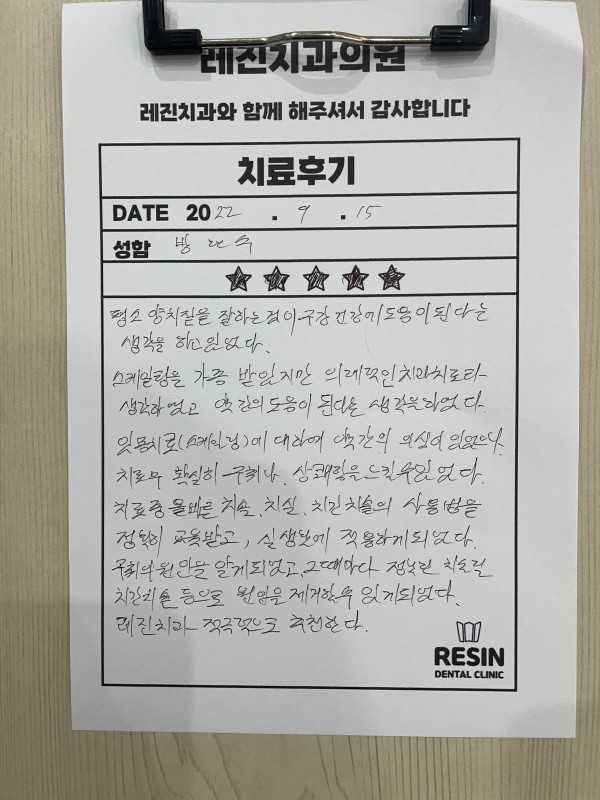 레진치과의원
레진치과와 함께 해주셔서 감사합니다
치료후기
DATE 2022 . 9 . 15
성함 방
평소 양치질을 잘하는것이 구강건강에 도움이 된다는
생각을 하고있었다.
스케일링을 가끔 받았지만 의례적인 치과치료라
생각하였고 약간의 도움이 된다는 생각을하였다.
잇몸치료(스케일링)에 대하여 약간의 의심이 있었으나,
치료후 확실히 구취나, 상쾌함을 느낄수있었다.
치료중 올바른 치솔, 치실, 치간치솔의 사용법을
정확히 교육받고, 실생활에 적용하게되었다.
구취의 원인을 알게되었고, 그때마다 정확한 치솔질
치간치솔 등으로 원인을 제거할수 있게되었다.
레진치과 적극적으로 추천한다.
RESIN
DENTAL CLINIC